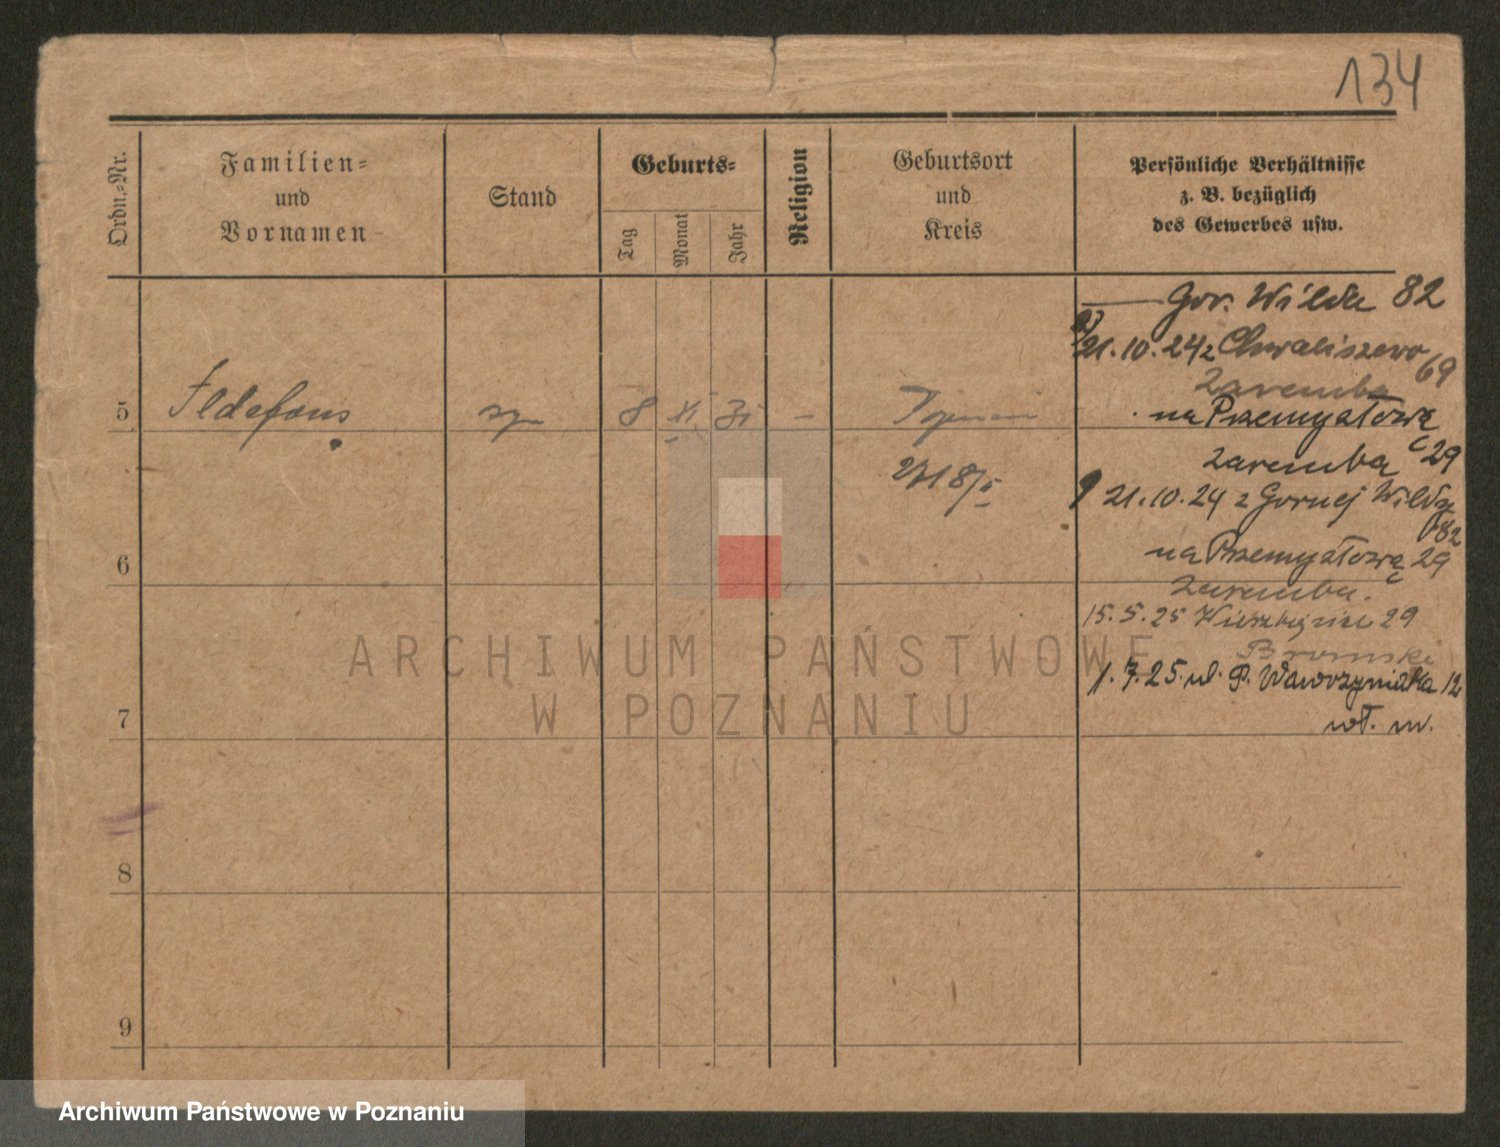 134
Ordn.-Nr.
Familien-
und
Vornamen
Stand
Geburts-
Tag
Monat
Jahr
Religion
Geburtsort
und
Kreis
Persönliche Verhältnisse
z. B. bezüglich
des Gewerbes usw.
Gór. Wilda 82
21.10.24 z Chwaliszewo 69
Zaremba
5 Ildefons 8 XI
na Przemysłową 29
Zaremba
21.10.24 z Górnej Wildy 82
6
na Przemysłową 29
Zaremba.
15.5.25 29
Bromski
1.7.25. ul. P. Wawrzyniaka 12
wł. m.
7
8
9
ARCHIWUM PAŃSTWOWE
W POZNANIU
Archiwum Państwowe w Poznaniu